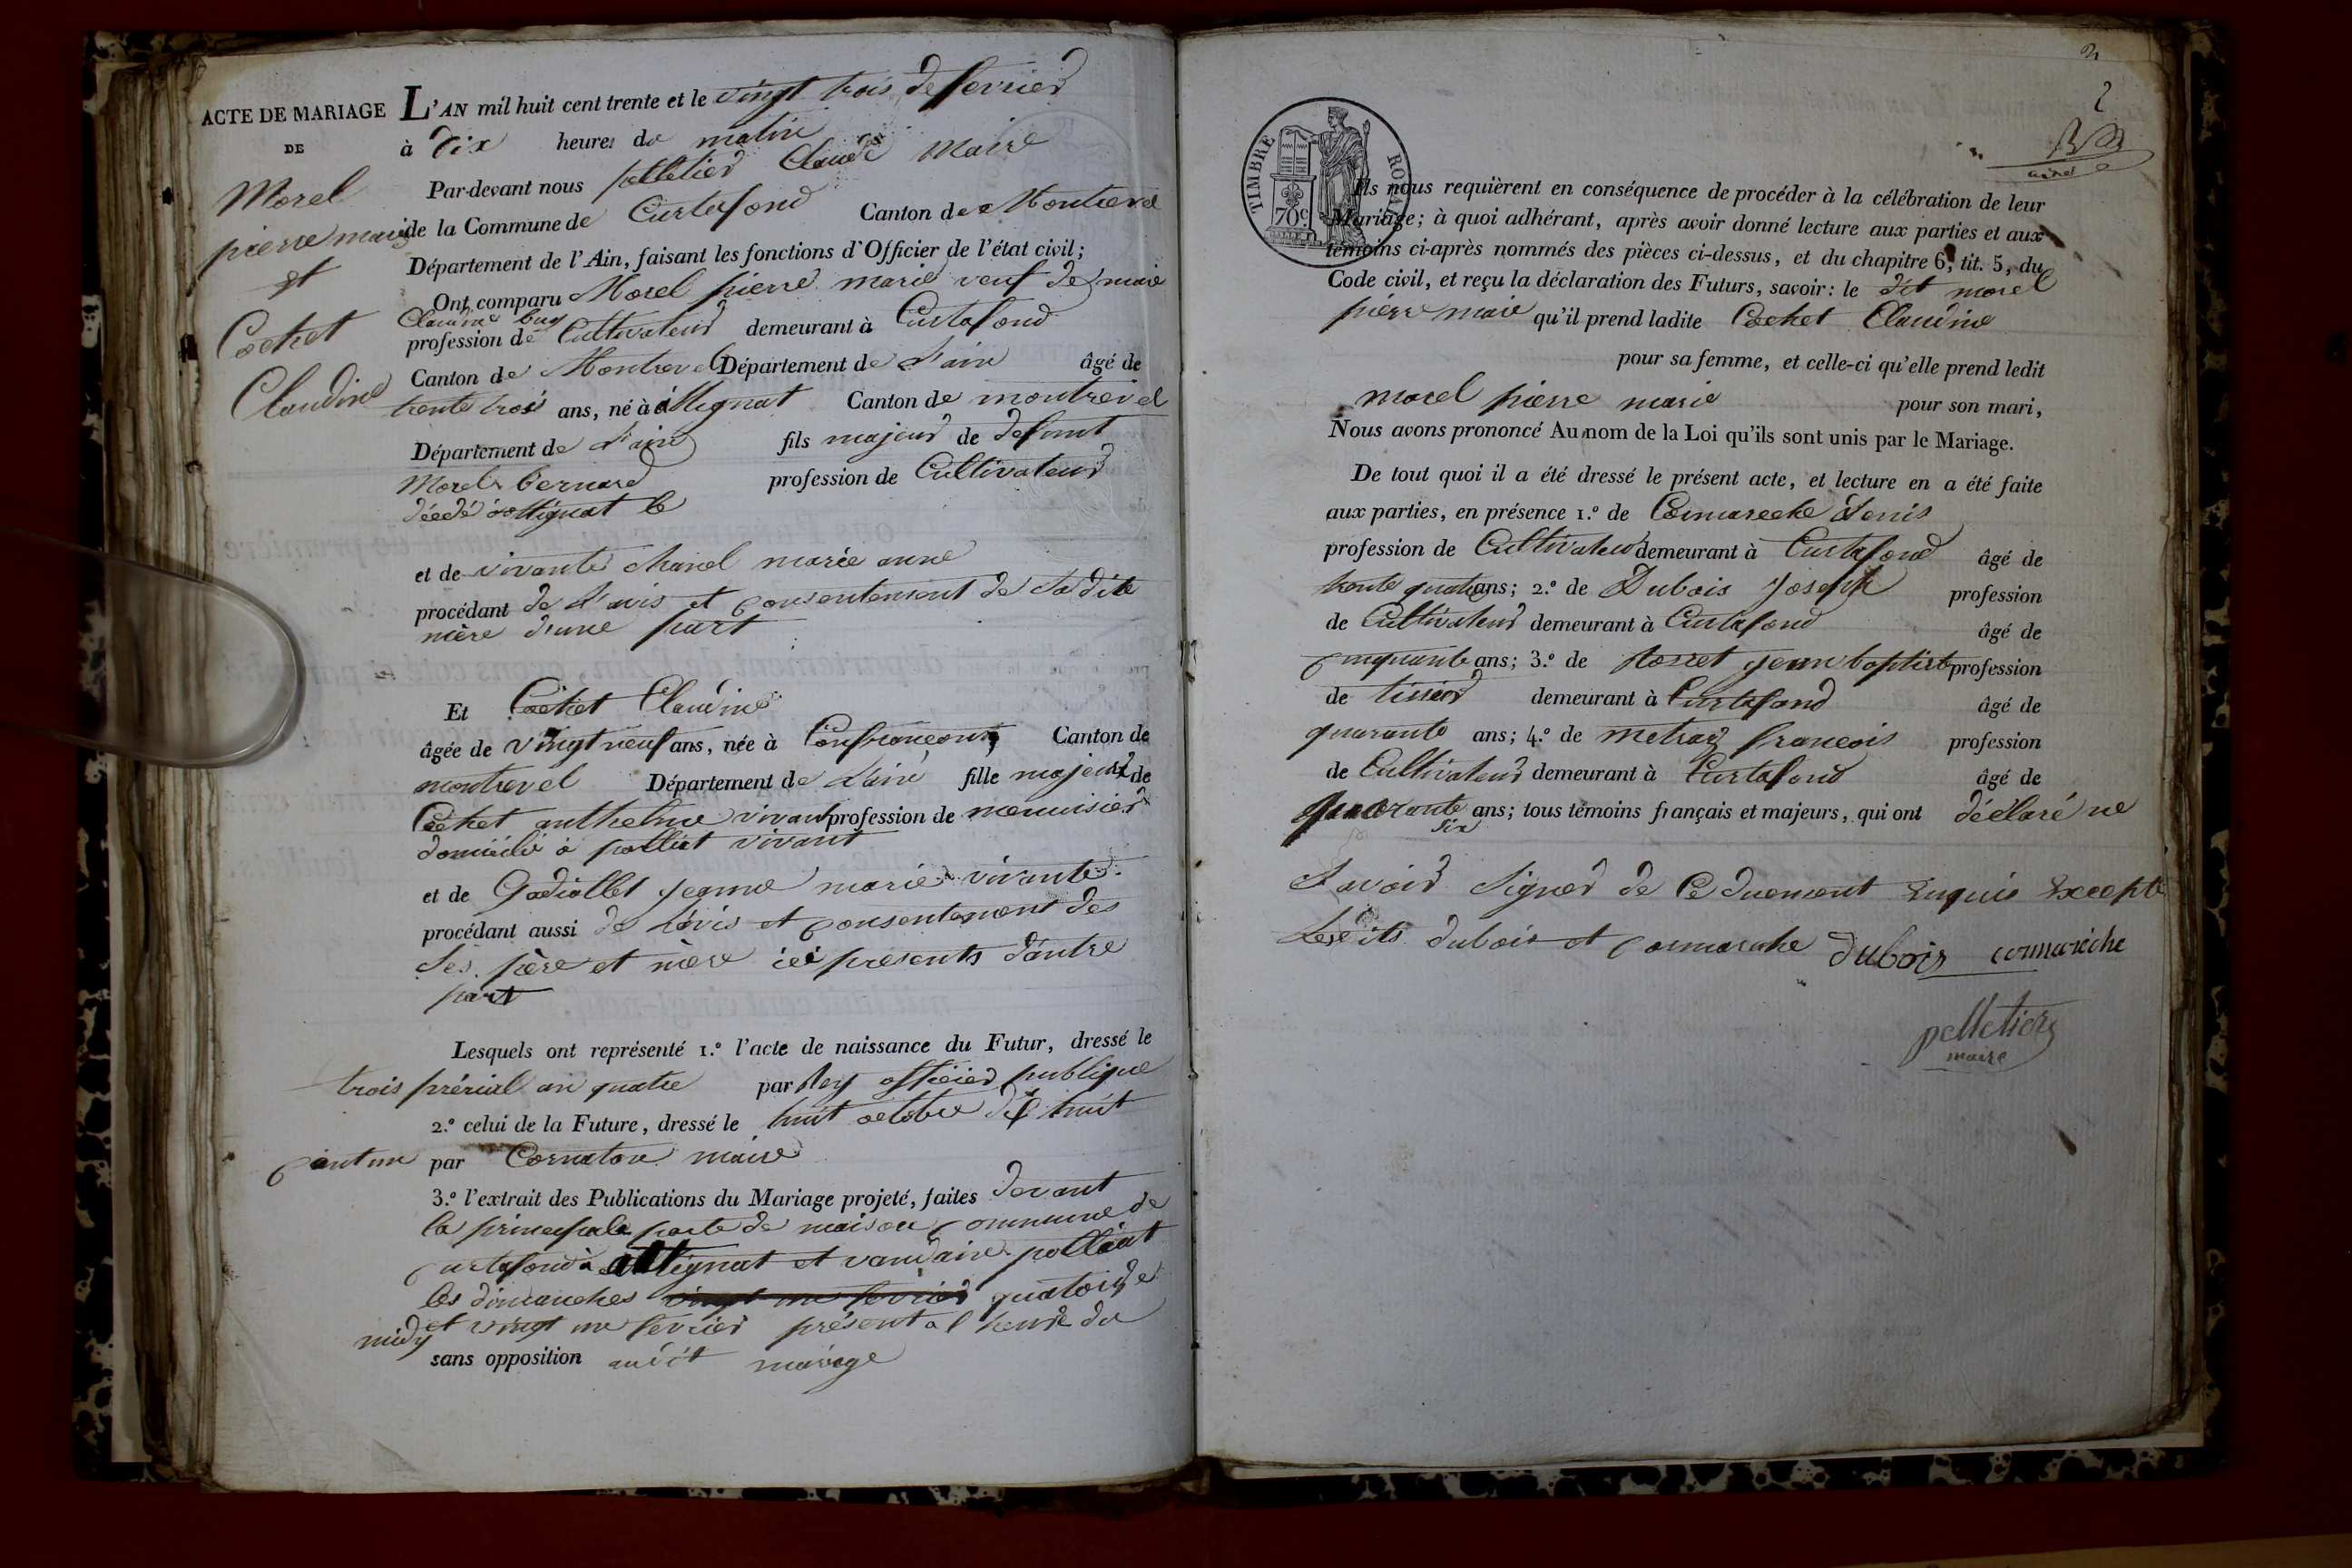 ACTE DE MARIAGE
DE
Morel
pierre marie
et
Cochet
Claudine
L'AN mil huit cent trente et le vingt trois de fevrier
à Dix heures du matin
Par-devant nous pelletier Claude Maire
de la Commune de Curtafond Canton de Montrevel
Département de l'Ain, faisant les fonctions d'Officier de l'état civil;
Ont comparu Morel pierre marie veuf de marie
Claudine buy
profession de Cultivateur demeurant à Curtafond
Canton de Montrevel Département de L'ain âgé de
trente trois ans, né à attignat Canton de montrevel
Département de L'ain fils majeur de defunt
Morel bernard profession de Cultivateur
décédé à attignat le
et de vivante chanel marie anne
procédant de L'avis et consentement de Sadite
mère d'une part
Et Cochet Claudine
âgée de vingt neuf ans, née à Confrançon Canton de
montrevel Département de L'ain fille majeur de
Cochet anthelme vivant profession de menuisier
domicilié à polliat vivant
et de Godiollet jeanne marie vivante
procédant aussi de L'avis et consentement des
Ses père et mère ici présents d'autre
part
Lesquels ont représenté 1.º l'acte de naissance du Futur, dressé le
trois prérial an quatre par Rey officier publique
2.º celui de la Future, dressé le huit octobre dix huit
cent un par Cornaton maire
3.º l'extrait des Publications du Mariage projeté, faites devant
la principale porte de maison commune de
curtafond à attignat et polliat
les dimanches vingt un fevrier quatorze
et vingt un fevrier présent a l heure du
midy
sans opposition audit mariage
2
2
TIMBRE ROYAL
70 c
Ils nous requièrent en conséquence de procéder à la célébration de leur
Mariage; à quoi adhérant, après avoir donné lecture aux parties et aux
témoins ci-après nommés des pièces ci-dessus, et du chapitre 6, tit. 5, du
Code civil, et reçu la déclaration des Futurs, savoir: le dit morel
pierre marie qu'il prend ladite Cochet Claudine
pour sa femme, et celle-ci qu'elle prend ledit
morel pierre marie pour son mari,
Nous avons prononcé Au nom de la Loi qu'ils sont unis par le Mariage.
De tout quoi il a été dressé le présent acte, et lecture en a été faite
aux parties, en présence 1.º de Cormareche Denis
profession de Cultivateur demeurant à Curtafond âgé de
trente quatre ans; 2.º de Dubois Joseph profession
de Cultivateur demeurant à Curtafond âgé de
cinquante ans; 3.º de jean baptiste profession
de tissier demeurant à Curtafond âgé de
quarante ans; 4.º de metraz francois profession
de Cultivateur demeurant à Curtafond âgé de
quarante ans; tous témoins français et majeurs, qui ont déclaré ne
six
Savoir Signer de Ce duement Enquis Excepté
Lesdits dubois et cormareche dubois cormarèche
pelletier
maire